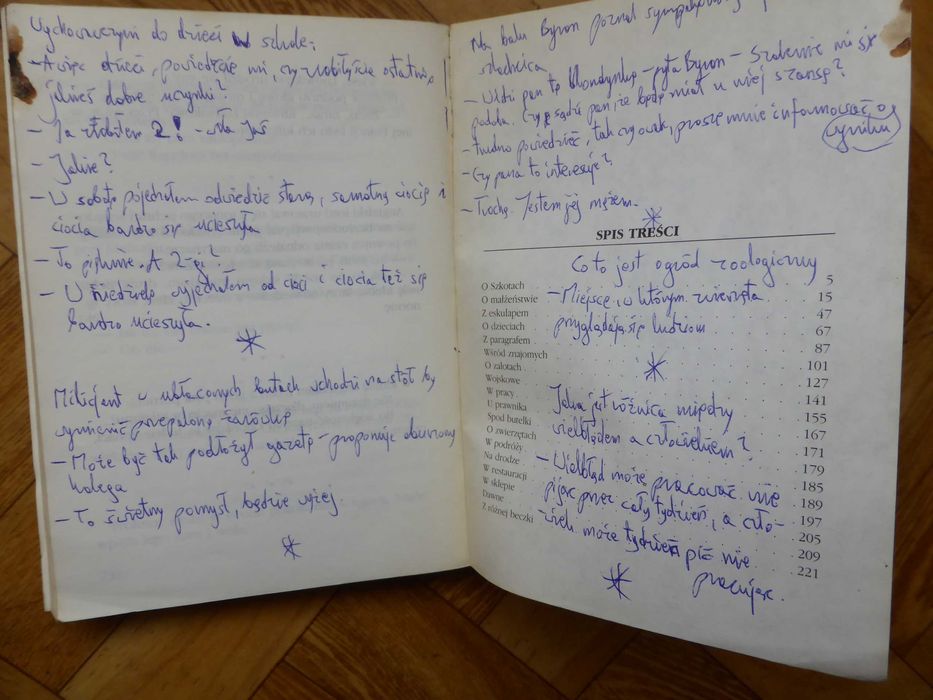 Wychowawczyni do dzieci w szkole:
- A więc dzieci, powiedzcie mi, czy zrobiłyście ostatnio
jakieś dobre uczynki?
- Ja zrobiłem 2! - Jaś
- Jakie?
- W sobotę pojechałem odwiedzić starą, samotną ciocię i
ciocia bardzo się ucieszyła
- To pięknie. A 2-gi?
- W niedzielę wyjechałem od cioci i ciocia też się
bardzo ucieszyła.
Milicjant w ubłoconych butach wchodzi na stół by
wymienić przepaloną żarówkę
- Może być tak podłożył gazetę - proponuje dowcipny
kolega
- To świetny pomysł, będzie wyżej.
Na balu Byron poznał sympatycznego
szlachcica
- Widzi pan tę blondynkę - pyta Byron - Szalenie mi się
podoba. Czy sądzi pan, że będę miał u niej szansę?
- Trudno powiedzieć, tak czy owak, proszę mnie informować o
wyniku
- Czy pana to interesuje?
- Trochę. Jestem jej mężem.
SPIS TREŚCI
Co to jest ogród zoologiczny
- Miejsce, w którym zwierzęta
przyglądają się ludziom
Jaka jest różnica między
wielbłądem a człowiekiem?
- Wielbłąd może pracować nie
pijąc przez cały tydzień, a czło-
wiek może tydzień pić nie
pracując.
O Szkotach 5
O małżeństwie 15
Z eskulapem 47
O dzieciach 67
Z paragrafem 87
Wśród znajomych 101
O zalotach 127
Wojskowe 141
W pracy 155
U prawnika 167
Spod butelki 171
O zwierzętach 179
W podróży 185
Na drodze 189
W restauracji 197
W sklepie 205
Dawne 209
Z różnej beczki 221